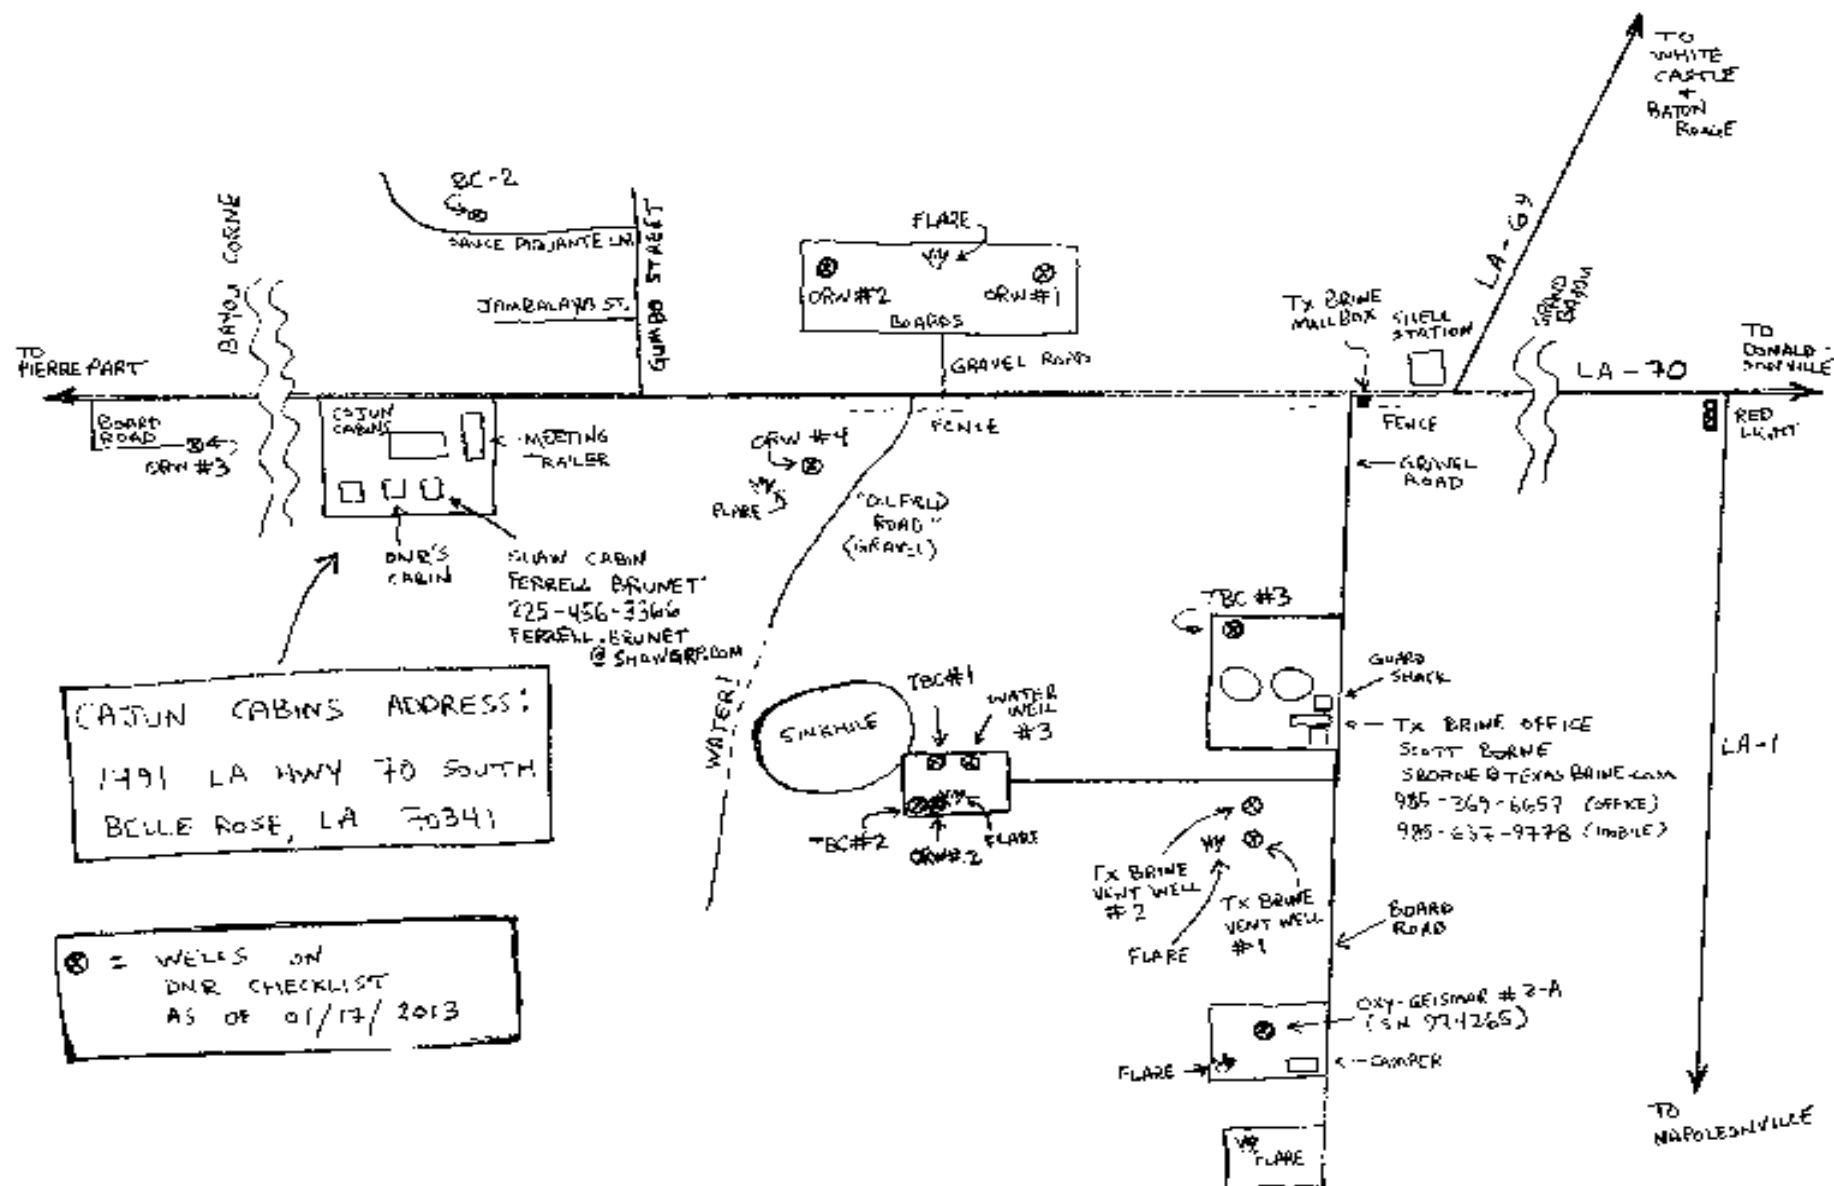 TO
WHITE
CASTLE
+
BATON
ROUGE
LA-69
BC-2
SAUCE PIQUANTE LN.
JAMBALAYA ST.
GUMBO STREET
BAYOU CORNE
FLARE
ORW #2
ORW #1
BOARDS
GRAVEL ROAD
TX BRINE
MAILBOX
SHELL
STATION
GRAND
BAYOU
LA-70
TO
DONALD-
SONVILLE
TO
PIERRE PART
BOARD
ROAD
ORW #3
CAJUN
CABINS
MEETING
TRAILER
DNR'S
CABIN
SHAW CABIN
FERRELL BRUNET
225-456-3366
FERRELL.BRUNET
@SHAWGRP.COM
ORW #4
FLARE
FENCE
"OILFIELD
ROAD"
(GRAVEL)
FENCE
RED
LIGHT
GRAVEL
ROAD
TBC #3
GUARD
SHACK
TX BRINE OFFICE
SCOTT BORNE
SBORNE@TEXASBRINE.COM
985-369-6657 (OFFICE)
985-637-9778 (MOBILE)
LA-1
WATER!
SINKHOLE
TBC #1
WATER
WELL
#3
TBC #2
ORW #2
FLARE
TX BRINE
VENT WELL
#2
TX BRINE
VENT WELL
#1
FLARE
BOARD
ROAD
OXY-GEISMAR #2-A
(SN 974265)
FLARE
CAMPER
FLARE
TO
NAPOLEONVILLE
CAJUN CABINS ADDRESS:
1491 LA HWY 70 SOUTH
BELLE ROSE, LA 70341
= WELLS ON
DNR CHECKLIST
AS OF 01/17/2013